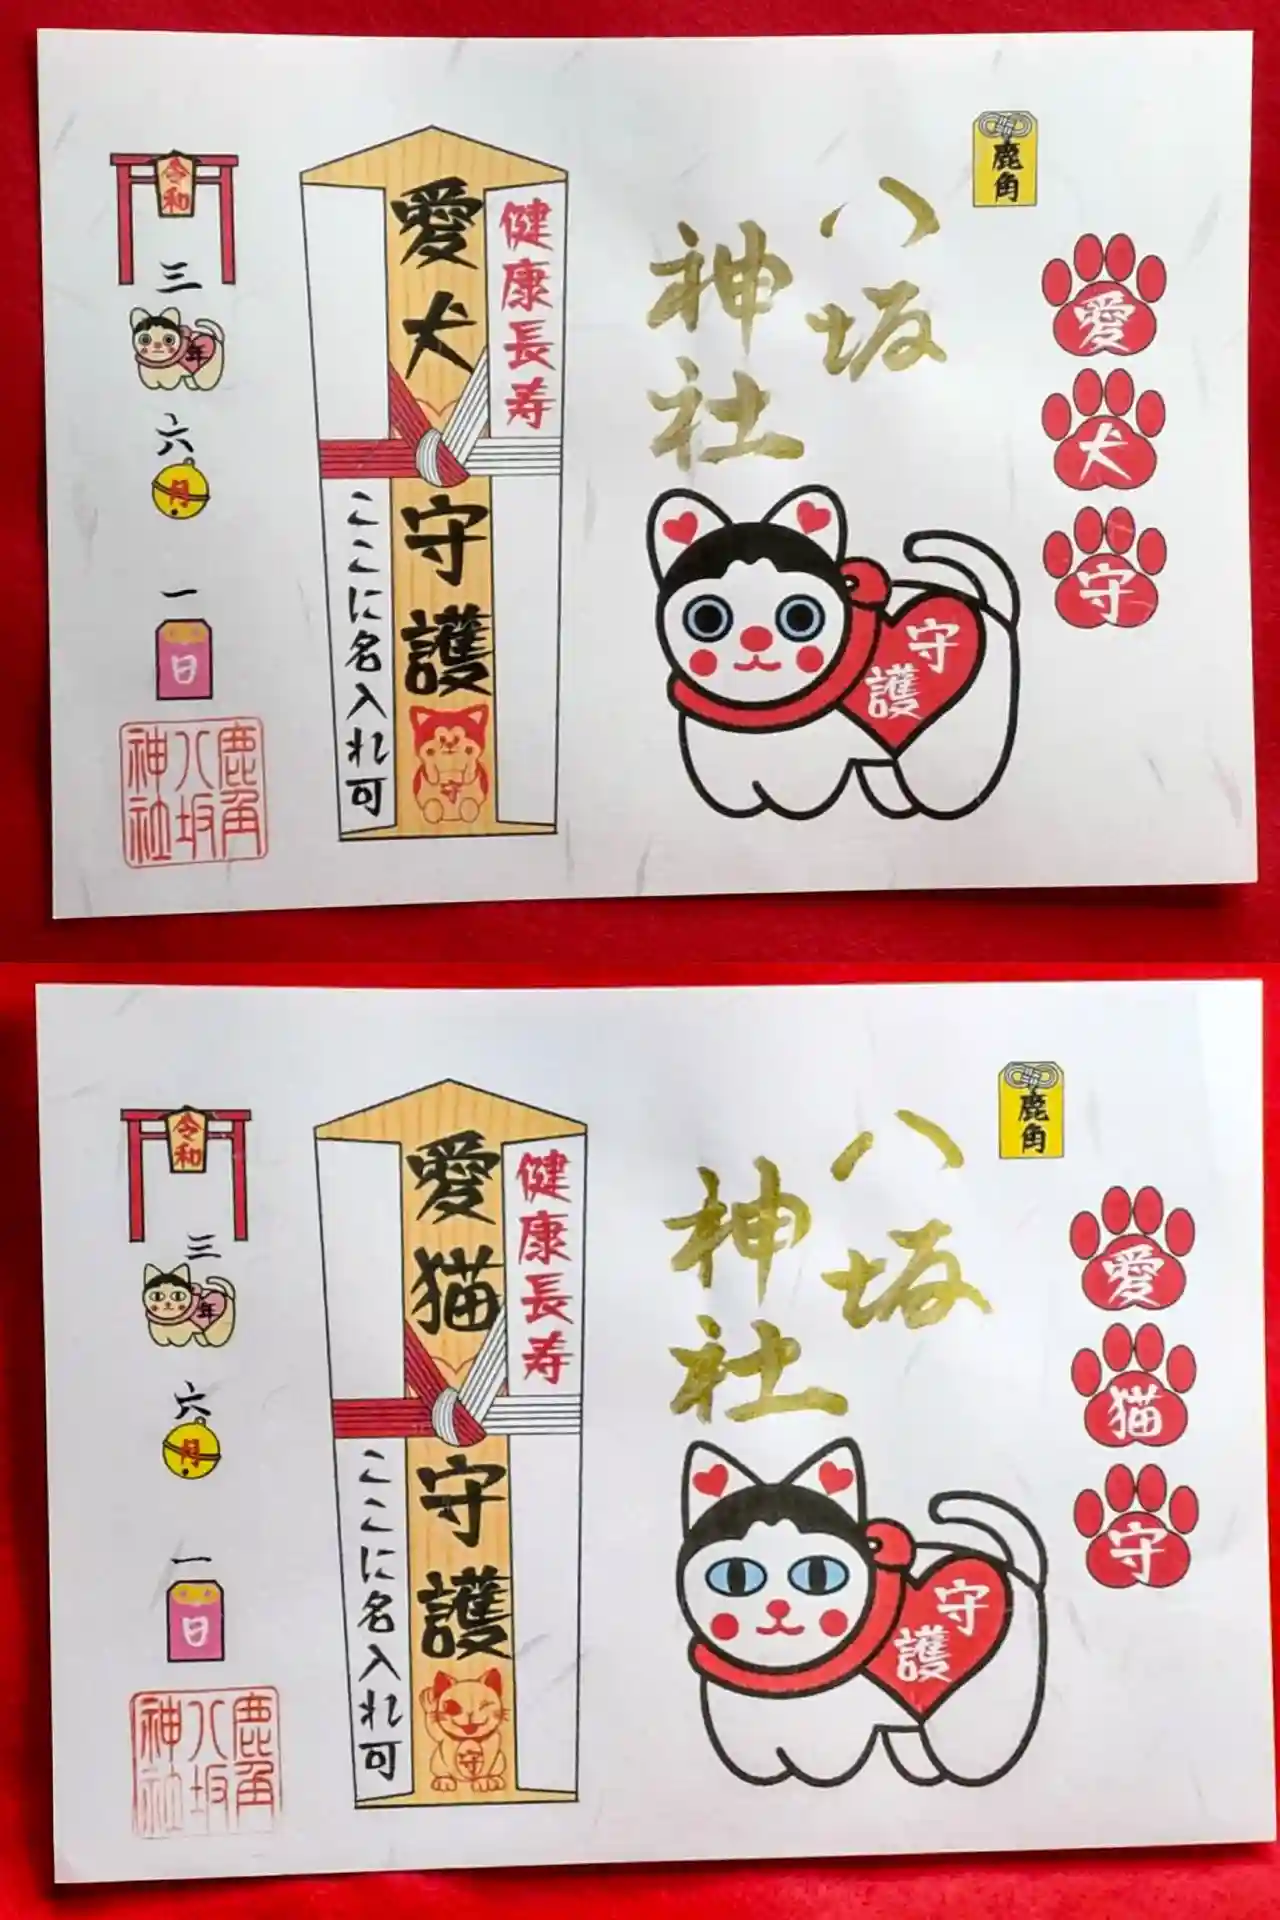 鹿角
愛犬守
八坂
神社
守護
健康長寿
愛犬守護
守
ここに名入れ可
令和
三年六月一日
鹿角
八坂
神社
鹿角
愛猫守
八坂
神社
守護
健康長寿
愛猫守護
守
ここに名入れ可
令和
三年六月一日
鹿角
八坂
神社